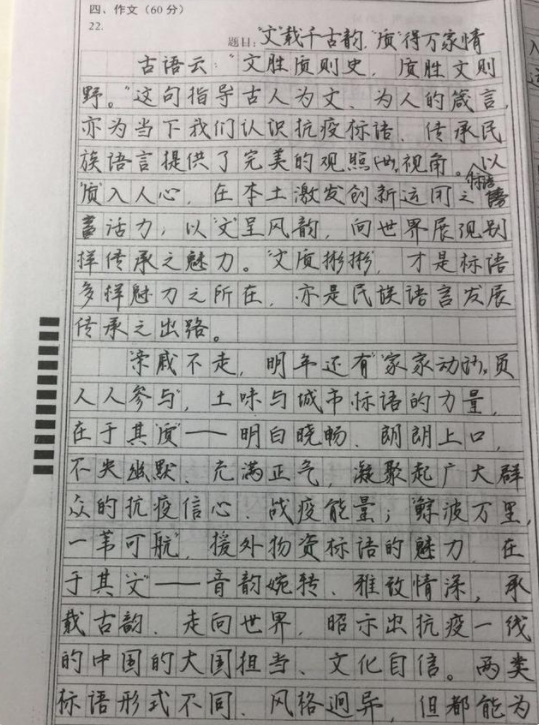 四、作文（60分）
22.
题目："文"载千古韵，"质"得万家情
古语云："文胜质则史，质胜文则
野。"这句指导古人为文、为人的箴言，
亦为当下我们认识抗疫标语、传承民
族语言提供了完美的观照视角。以
"质"入人心，在本土激发创新运用之标语
活力，以"文"呈风韵，向世界展现别
样传承之魅力。"文质彬彬"，才是标语
多样魅力之所在，亦是民族语言发展
传承之出路。
"亲戚不走，明年还有""家家动员，
人人参与"，土味与城市标语的力量，
在于其"质"——明白晓畅、朗朗上口，
不失幽默、充满正气，凝聚起广大群
众的抗疫信心、战疫能量；"鲸波万里，
一苇可航"，援外物资标语的魅力，在
于其"文"——音韵婉转、雅致情深，承
载古韵、走向世界，昭示出抗疫一线
的中国的大国担当、文化自信。两类
标语形式不同、风格迥异，但都能为